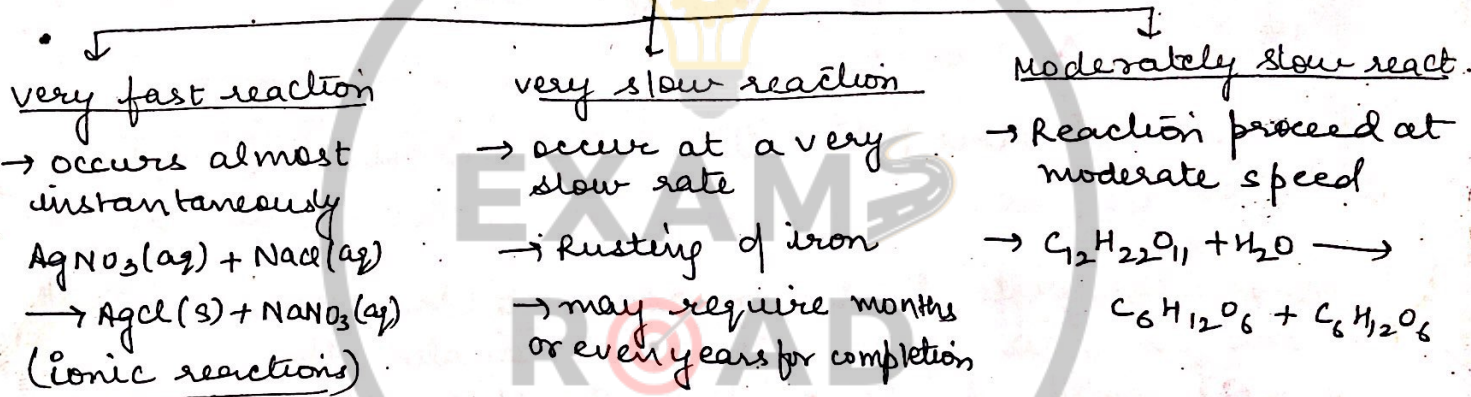 very fast reaction
→ occurs almost
instantaneously
AgNO₃(aq) + NaCl(aq)
⟶ AgCl(s) + NaNO₃(aq)
(ionic reactions)
very slow reaction
→ occur at a very
slow rate
→ Rusting of iron
→ may require months
or even years for completion
Moderately slow react.
→ Reaction proceed at
moderate speed
→ C₁₂H₂₂O₁₁ + H₂O ⟶
C₆H₁₂O₆ + C₆H₁₂O₆
EXAMS
ROAD